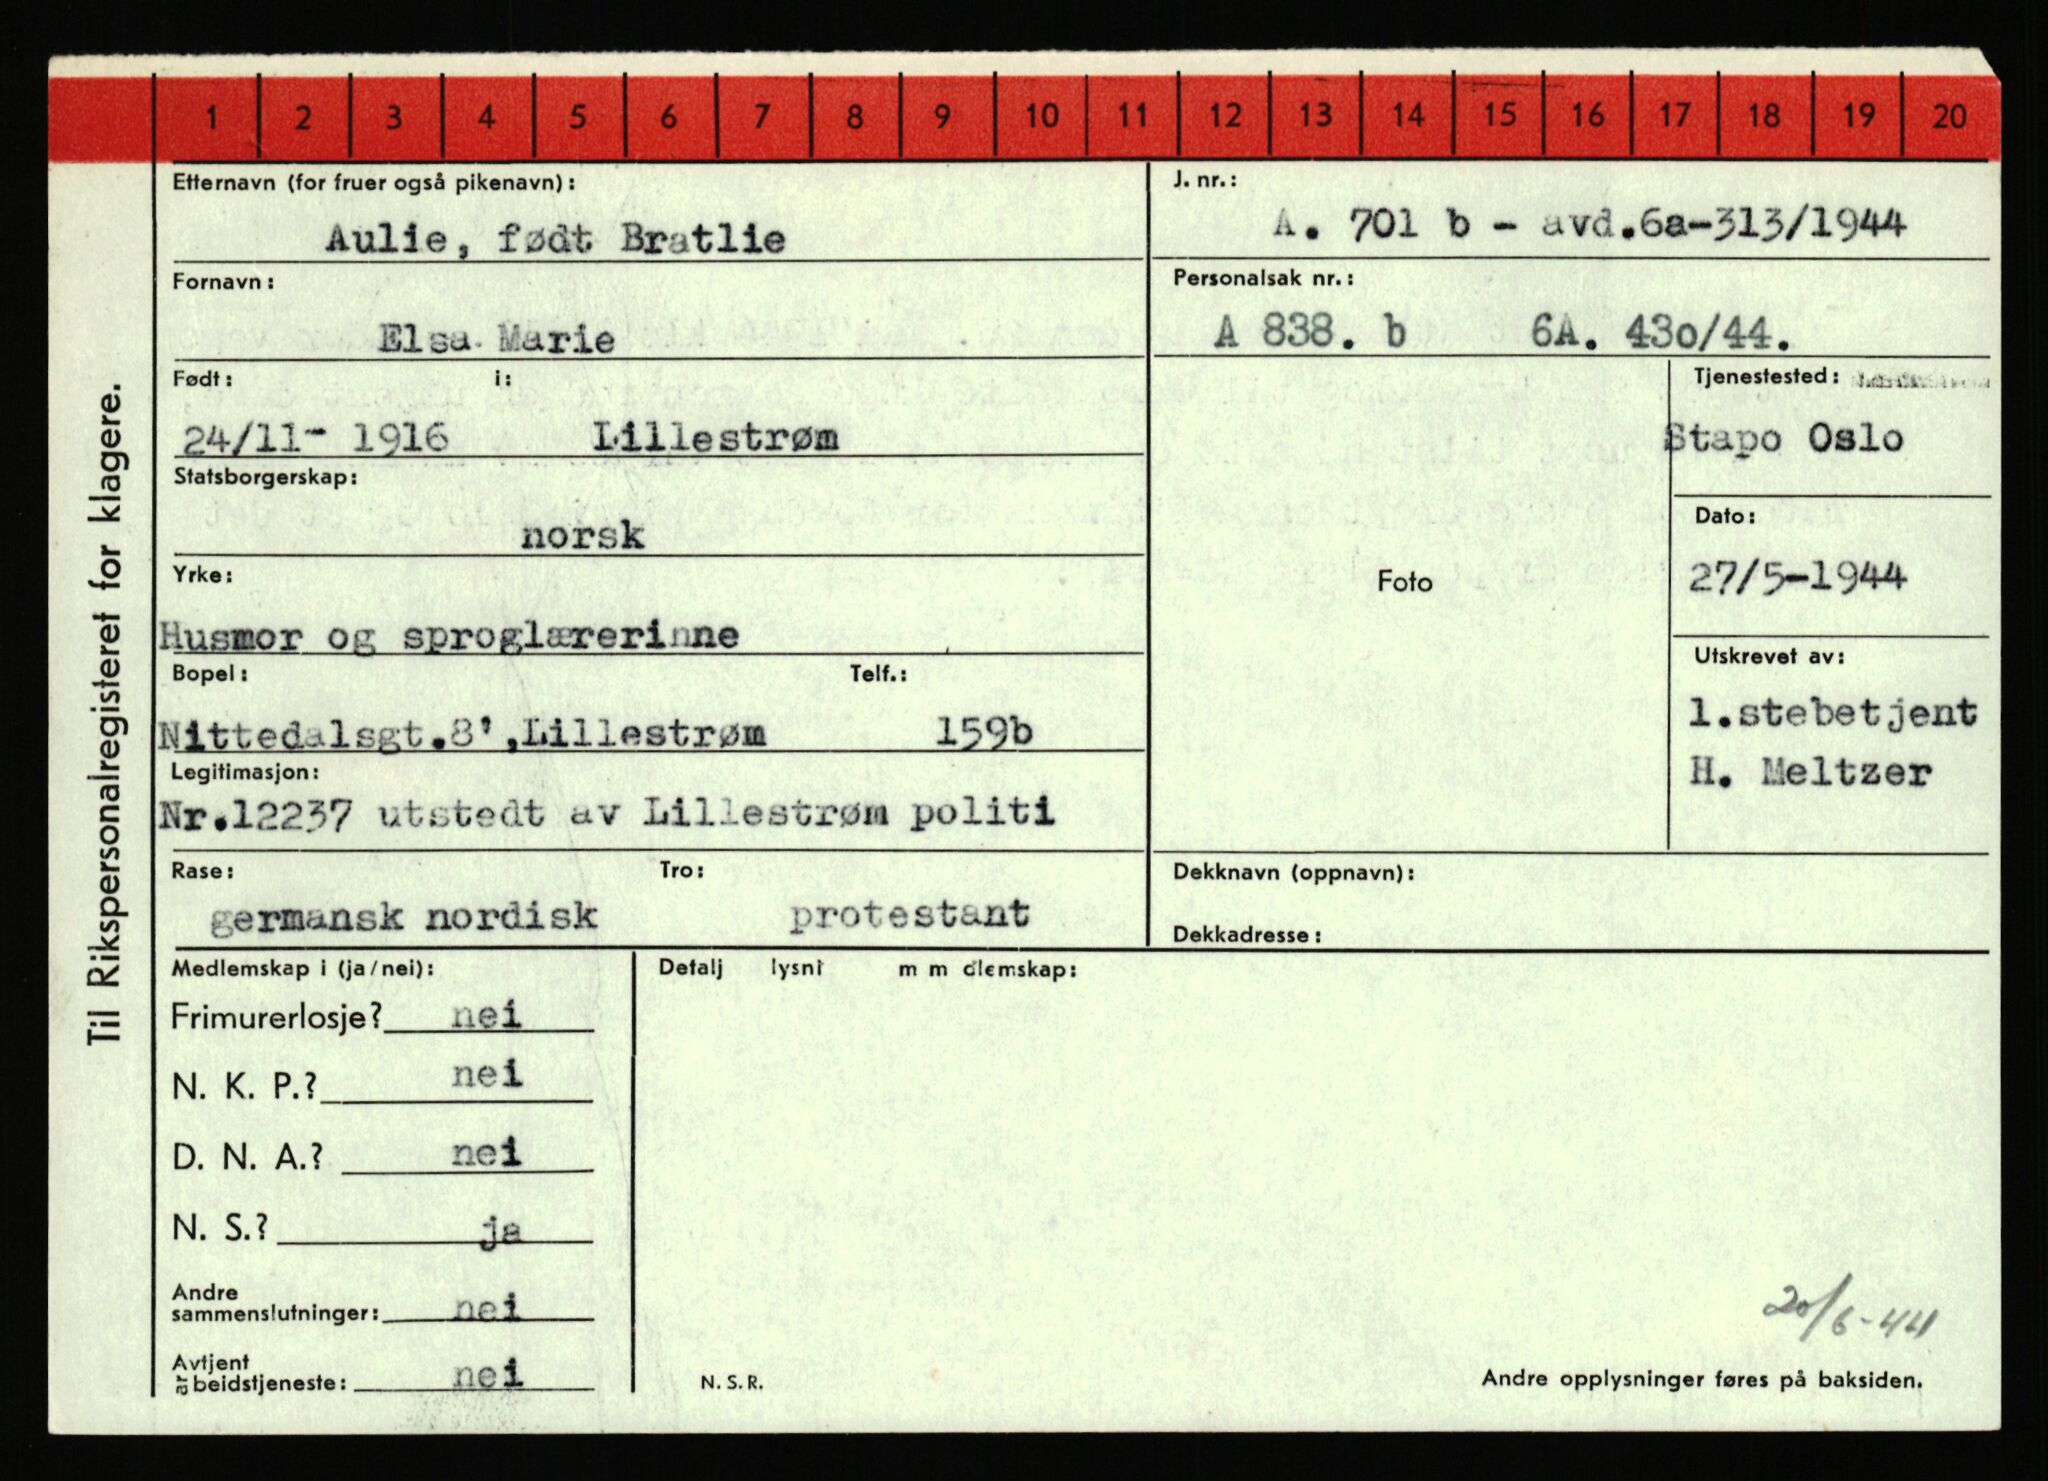 1 2 3 4 5 6 7 8 9 10 11 12 13 14 15 16 17 18 19 20
Til Rikspersonalregisteret for klagere.
Etternavn (for fruer også pikenavn):
Aulie, født Bratlie
Fornavn:
Elsa Marie
Født: i:
24/11- 1916 Lillestrøm
Statsborgerskap:
norsk
Yrke:
Husmor og sproglærerinne
Bopel: Telf.:
Nittedalsgt.8',Lillestrøm 159b
Legitimasjon:
Nr.12237 utstedt av Lillestrøm politi
Rase: Tro:
germansk nordisk protestant
J. nr.:
A. 701 b - avd.6a-313/1944
Personalsak nr.:
A 838. b 6A. 430/44.
Foto
Tjenestested:
Stapo Oslo
Dato:
27/5-1944
Utskrevet av:
1.stebetjent
H. Meltzer
Dekknavn (oppnavn):
Dekkadresse:
Medlemskap i (ja/nei):
Frimurerlosje? nei
N. K. P.? nei
D. N. A.? nei
N. S.? ja
Andre
sammenslutninger: nei
Avtjent
arbeidstjeneste: nei
Detalj lysni m m dlemskap:
N. S. R.
20/6-44
Andre opplysninger føres på baksiden.